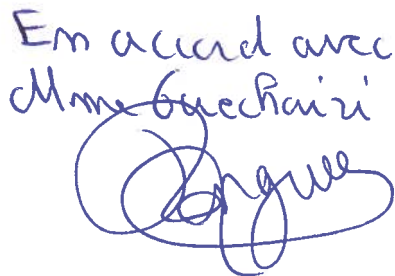 En accord avec
Mme Guechairi